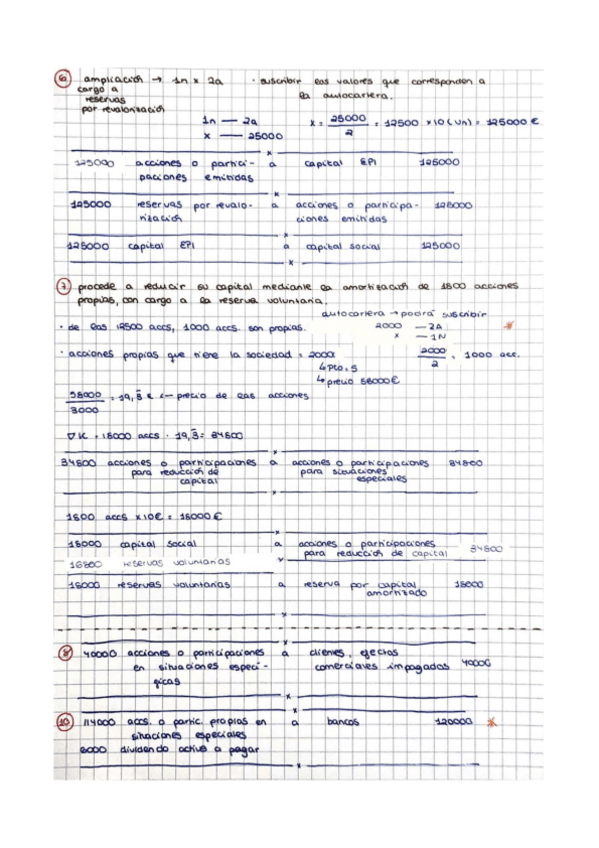 6) ampliación → 1n x 2a · suscribir los valores que corresponden a
cargo a la autocartera.
reservas
por revalorización
1n — 2a x = 25000 / 2 = 12500 x10 (vn) = 125000 €
x — 25000
125000 acciones o partici- a capital EPI 125000
paciones emitidas
125000 reservas por revalo- a acciones o participa- 125000
rización ciones emitidas
125000 capital EPI a capital social 125000
7) procede a reducir su capital mediante la amortización de 1800 acciones
propias, con cargo a la reserva voluntaria.
autocartera → podrá suscribir
· de las 12500 accs, 1000 accs. son propias. 2000 — 2A *
x — 1N
· acciones propias que tiene la sociedad = 2000 2000 / 2 = 1000 acc.
↳ Pto. 5
↳ precio 58000 €
58000 / 3000 = 19,3 € ← precio de las acciones
∇K = 18000 accs · 19,3 = 34800
34800 acciones o participaciones a acciones o participaciones 34800
para reducción de para situaciones
capital especiales
1800 accs x10€ = 18000 €
18000 capital social a acciones o participaciones 34800
para reducción de capital
16800 reservas voluntarias
18000 reservas voluntarias a reserva por capital 18000
amortizado
8) 40000 acciones o participaciones a clientes, efectos 40000
en situaciones especí- comerciales impagados
ficas
10) 114000 accs. o partic. propias en a bancos 120000 *
situaciones especiales
6000 dividendo activo a pagar